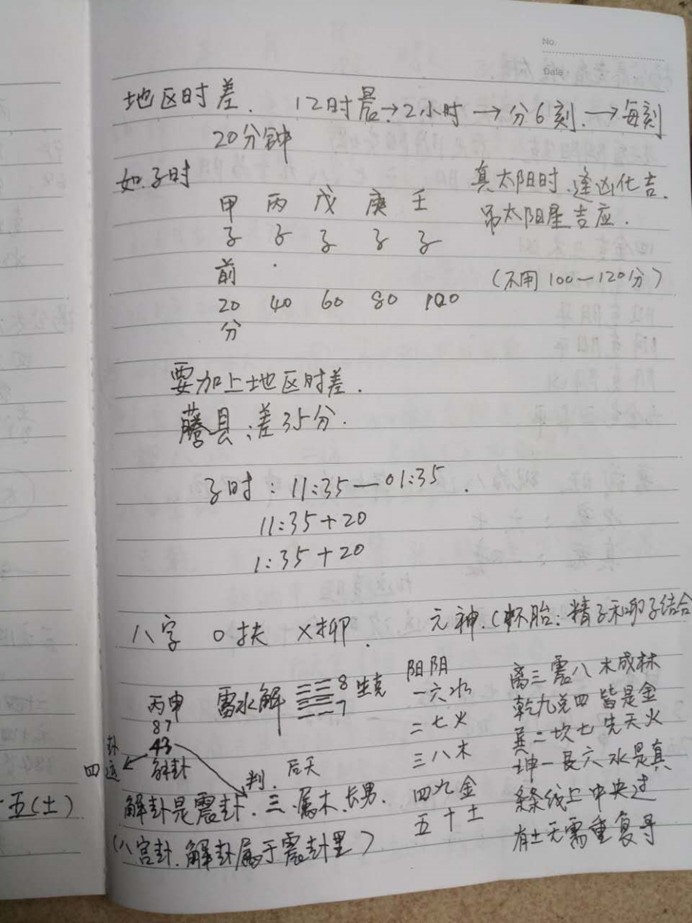 No.
Date
地区时差. 12时晨→2小时→分6刻.→每刻
20分钟
如.子时 真太阳时.逢凶化吉.
甲 丙 戊 庚 壬 吊太阳星吉应.
子 子 子 子 子
前 (不用100—120分)
20 40 60 80 100
分
要加上地区时差.
藤县:差35分.
子时:11:35—01:35.
11:35+20
1:35+20
八字 O扶 X抑. 元神.(杯胎:精子和卵子结合
丙申 雷水解 8 生克 阳阴 离三震八木成林
87 7 一六水 乾九兑四皆是金
43 二七火 巽二坎七先天火
四 卦运 解卦 判.后天 三八木 坤一艮六水是真
五(土) 解卦是震卦.三.属木.长男. 四九金 条线上中央过
(八宫卦.解卦属于震卦里) 五十土 有土无需重复寻